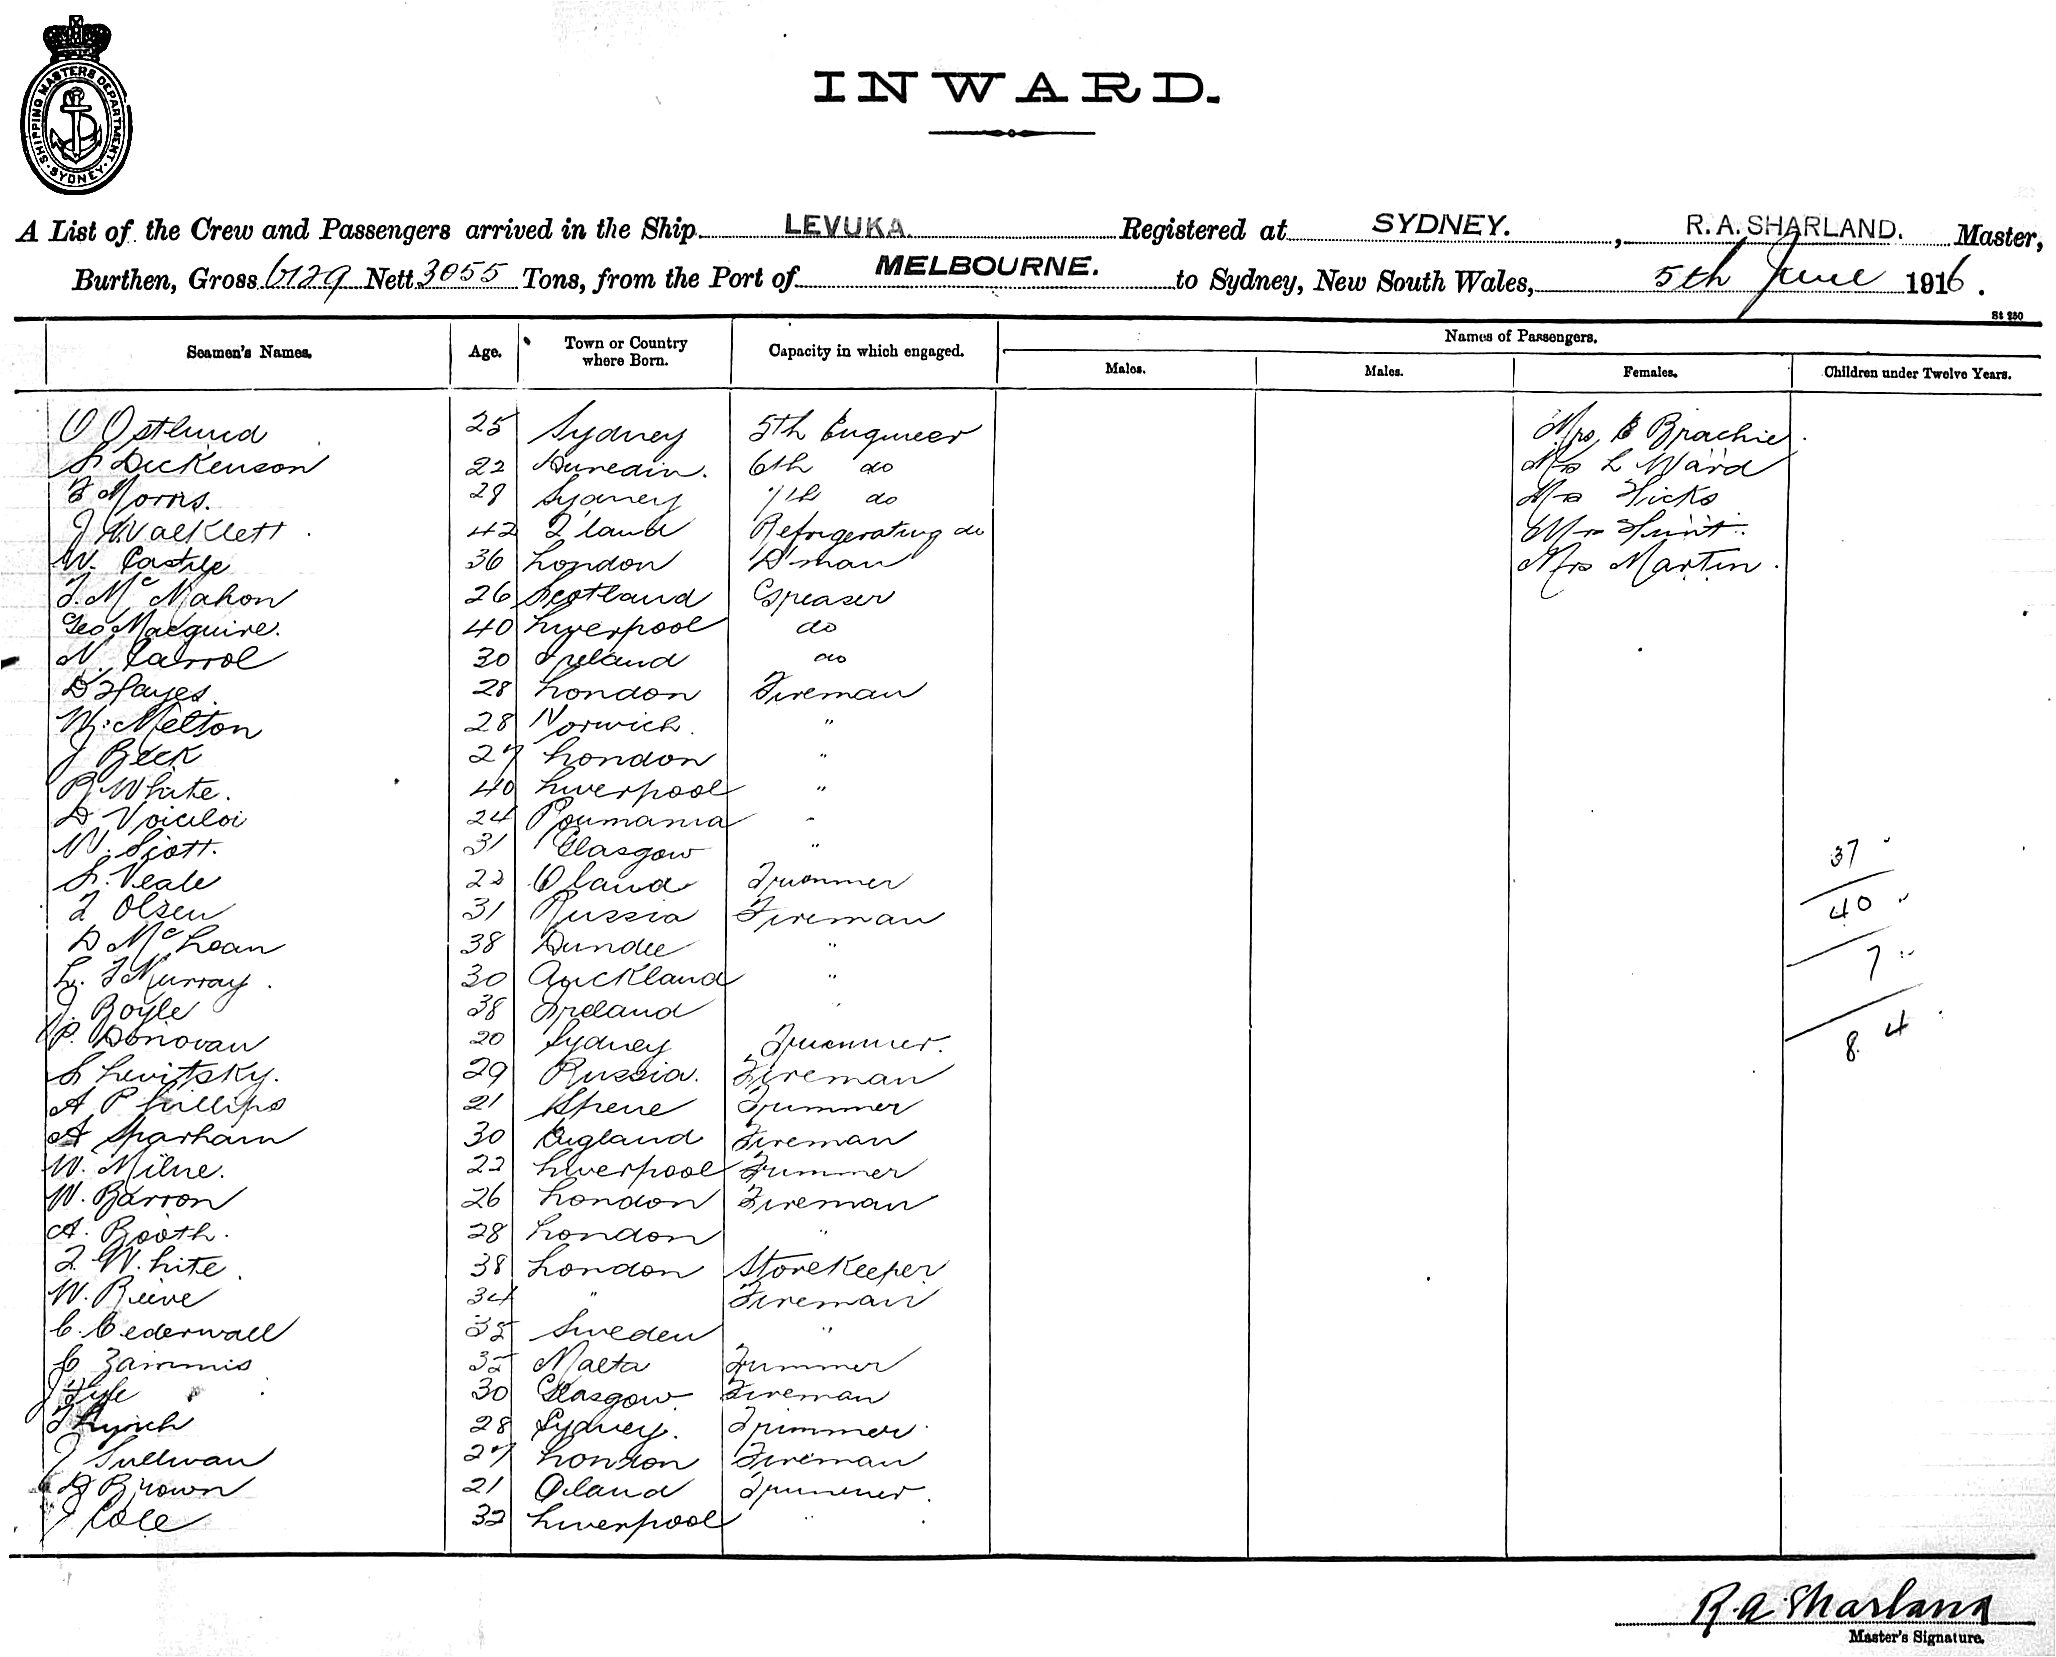 SHIPPING MASTERS DEPARTMENT. SYDNEY
INWARD.
A List of the Crew and Passengers arrived in the Ship LEVUKA. Registered at SYDNEY. , R. A. SHARLAND. Master,
Burthen, Gross 6129 Nett 3055 Tons, from the Port of MELBOURNE. to Sydney, New South Wales, 5th June 1916.
St 250
Seamen's Names. Age. Town or Country where Born. Capacity in which engaged. Names of Passengers.
Males. Males. Females. Children under Twelve Years.
O Ostlund 25 Sydney 5th Engineer Mrs E Brachie
S Dickenson 22 Dunedin. 6th do Mrs L Ward
F Morris. 28 Sydney 7th do Mrs Hicks
J Walklett 42 Q'land Refrigerating do Mrs Hunt
W. Castle 36 London D'man Mrs Martin
J. McMahon 26 Scotland Greaser
Geo Macguire. 40 Liverpool do
N. Carrol 30 Ireland do
D Hayes. 28 London Fireman
W. Melton 28 Norwich. "
J Beck 27 London "
R White. 40 Liverpool "
D Voiciloi 24 Roumania "
W. Scott. 31 Glasgow " 37
S. Veale 22 Q land Trimmer
F Olsen 31 Russia Fireman 40
D McLean 38 Dundee "
L. F Murray 30 Auckland " 7
J. Boyle 38 Ireland "
P. Donovan 20 Sydney Trimmer. 84
S Levitsky. 29 Russia. Fireman
A Phillips 21 Trimmer
A Sparham 30 England Fireman
W. Milne. 22 Liverpool Trimmer
W. Barron 26 London Fireman
A. Booth. 28 London "
F White 38 London Storekeeper
W. Reeve 34 " Fireman
C. Cederwall 35 Sweden "
C Zammis 35 Malta Trimmer
J Lyle 30 Glasgow. Fireman
T Lynch 28 Sydney. Trimmer
J Sullivan 27 London Fireman
D Brown 21 Q land Trimmer.
J Cole 32 Liverpool "
R. A. Sharland
Master's Signature.